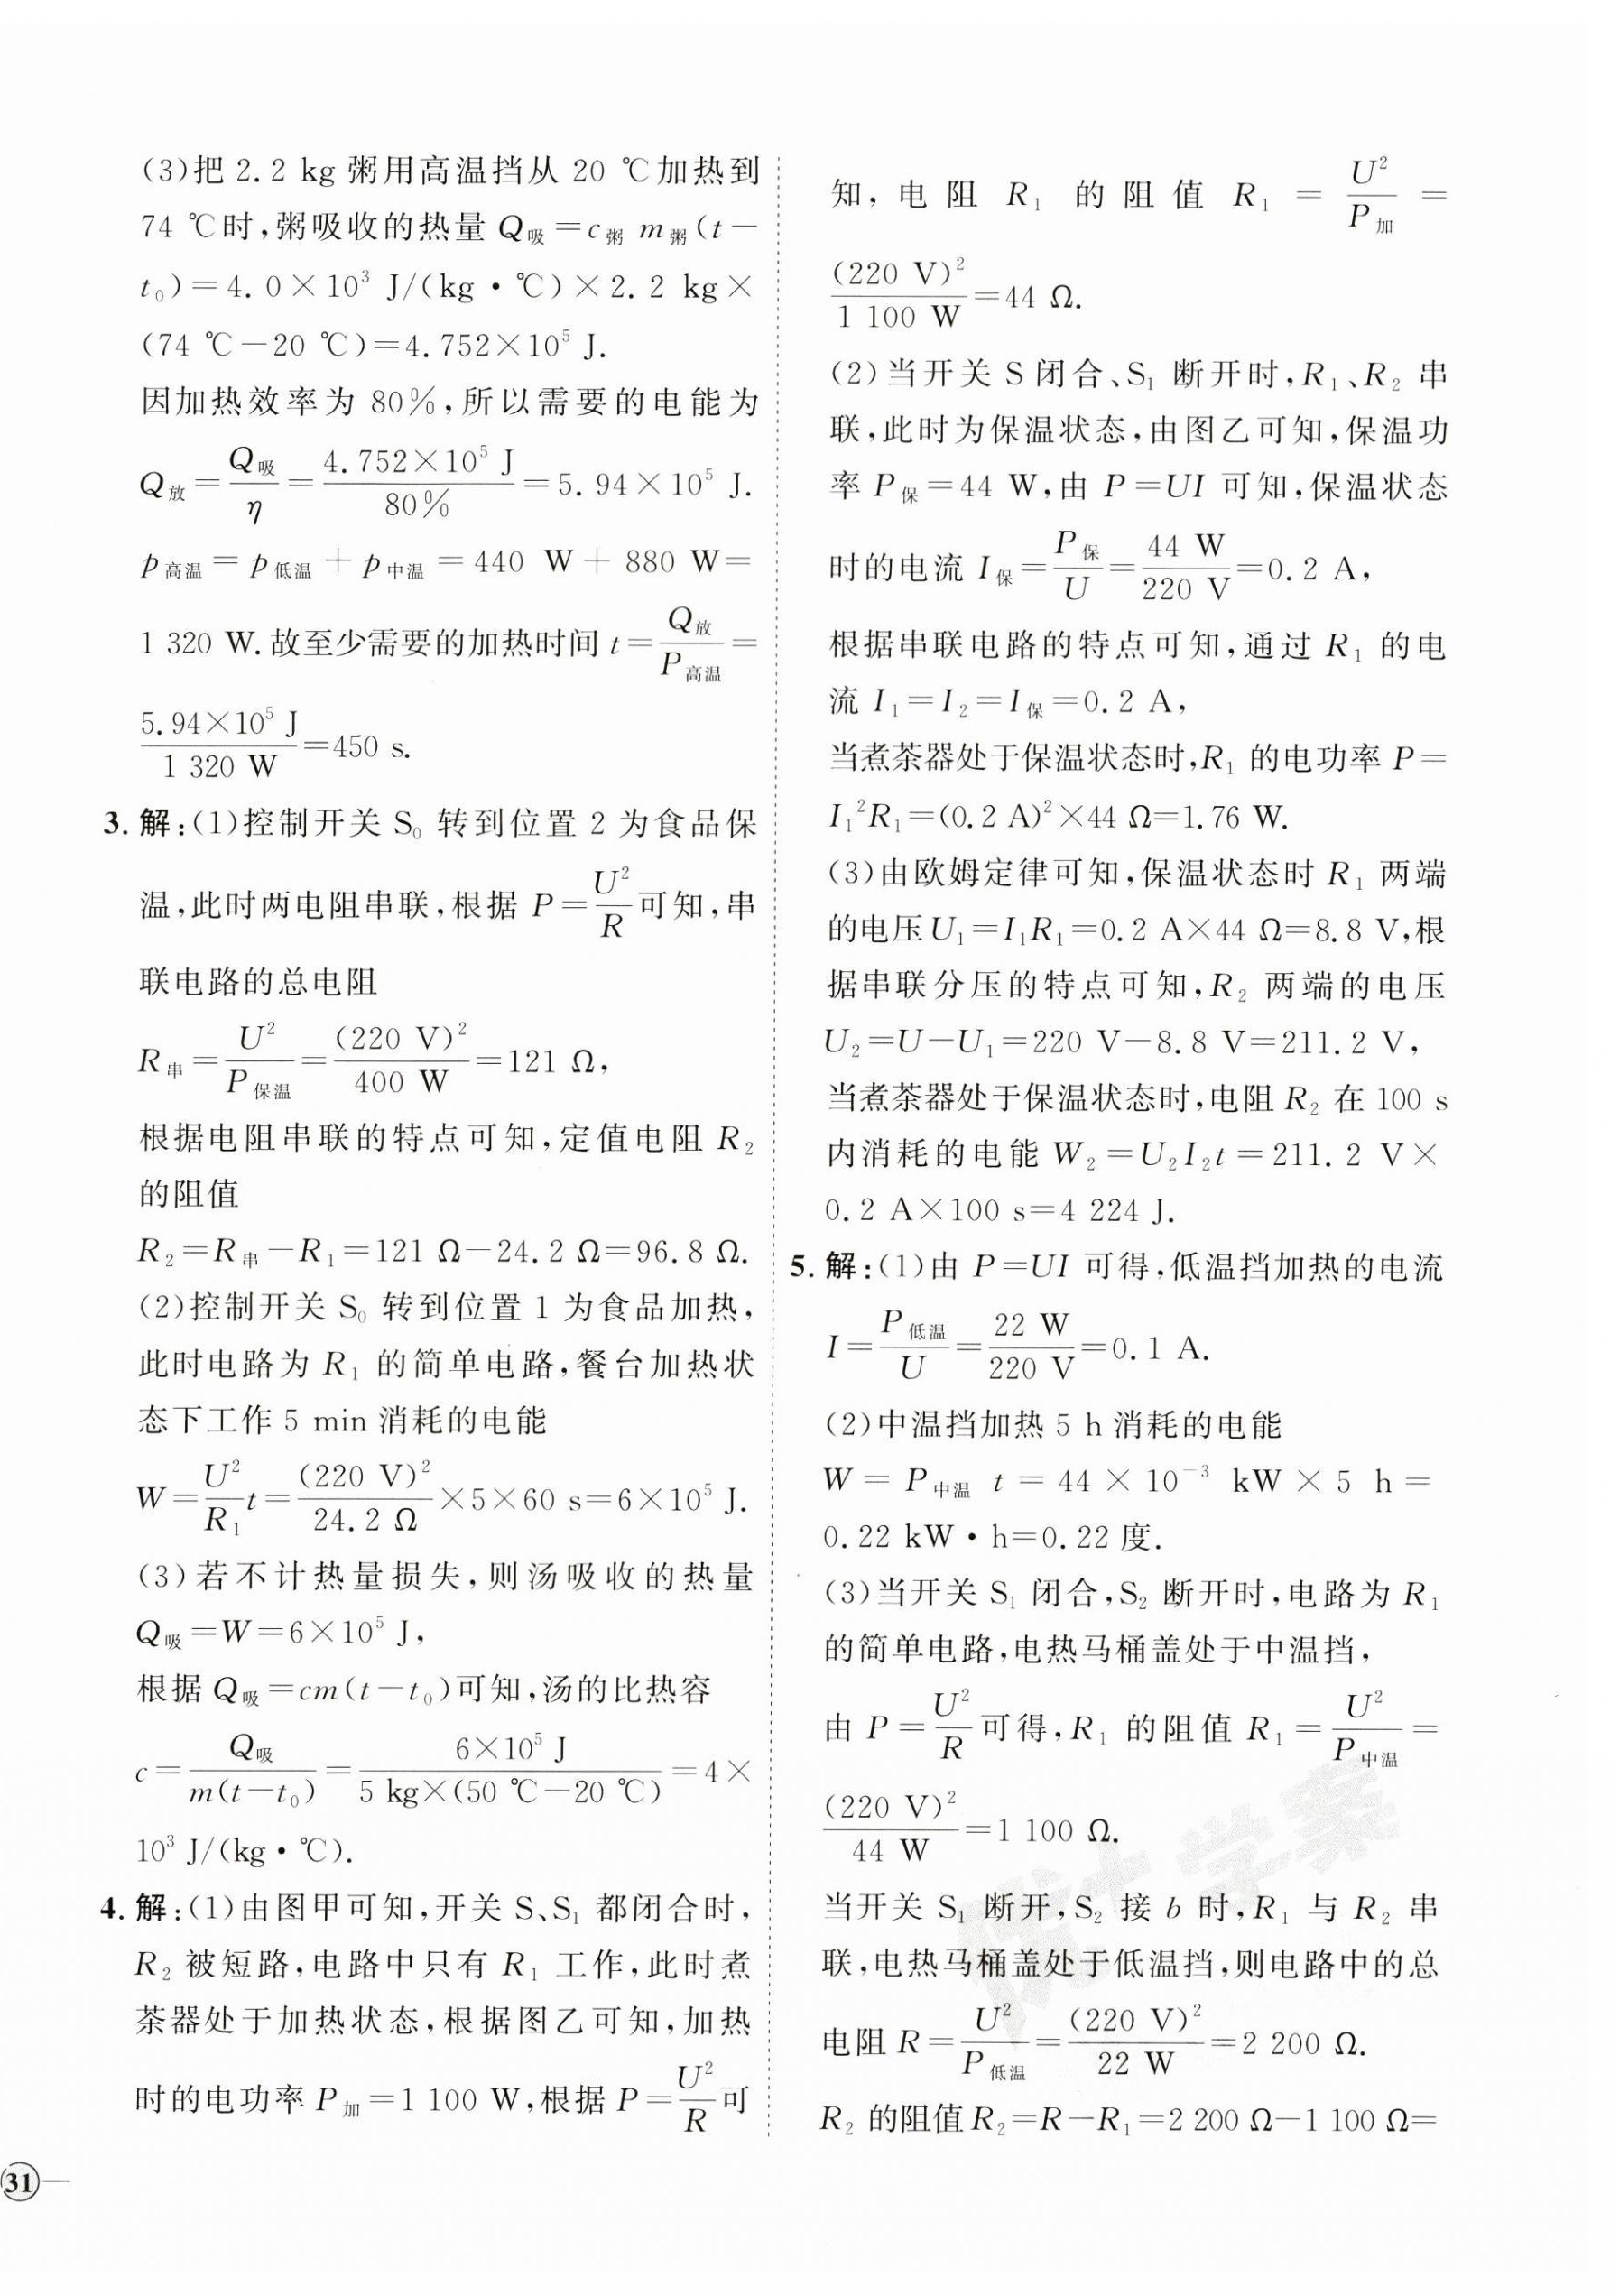 (3)把 2.2 kg 粥用高温挡从 20 ℃加热到
74 ℃时,粥吸收的热量 Q吸=c粥 m粥(t－
t₀)=4.0×10³ J/(kg·℃)×2.2 kg×
(74 ℃－20 ℃)=4.752×10⁵ J.
因加热效率为 80%,所以需要的电能为
Q放=Q吸/η=4.752×10⁵ J/80%=5.94×10⁵ J.
p高温=p低温+p中温=440 W+880 W=
1 320 W.故至少需要的加热时间 t=Q放/P高温=
5.94×10⁵ J/1 320 W=450 s.
3. 解:(1)控制开关 S₀ 转到位置 2 为食品保
温,此时两电阻串联,根据 P=U²/R可知,串
联电路的总电阻
R串=U²/P保温=(220 V)²/400 W=121 Ω,
根据电阻串联的特点可知,定值电阻 R₂
的阻值
R₂=R串－R₁=121 Ω－24.2 Ω=96.8 Ω.
(2)控制开关 S₀ 转到位置 1 为食品加热,
此时电路为 R₁ 的简单电路,餐台加热状
态下工作 5 min 消耗的电能
W=U²/R₁ t=(220 V)²/24.2 Ω×5×60 s=6×10⁵ J.
(3)若不计热量损失,则汤吸收的热量
Q吸=W=6×10⁵ J,
根据 Q吸=cm(t－t₀)可知,汤的比热容
c=Q吸/m(t－t₀)=6×10⁵ J/5 kg×(50 ℃－20 ℃)=4×
10³ J/(kg·℃).
4. 解:(1)由图甲可知,开关 S、S₁ 都闭合时,
R₂ 被短路,电路中只有 R₁ 工作,此时煮
茶器处于加热状态,根据图乙可知,加热
时的电功率 P加=1 100 W,根据 P=U²/R可
31
知,电阻 R₁ 的阻值 R₁=U²/P加=
(220 V)²/1 100 W=44 Ω.
(2)当开关 S 闭合、S₁ 断开时,R₁、R₂ 串
联,此时为保温状态,由图乙可知,保温功
率 P保=44 W,由 P=UI 可知,保温状态
时的电流 I保=P保/U=44 W/220 V=0.2 A,
根据串联电路的特点可知,通过 R₁ 的电
流 I₁=I₂=I保=0.2 A,
当煮茶器处于保温状态时,R₁ 的电功率 P=
I₁²R₁=(0.2 A)²×44 Ω=1.76 W.
(3)由欧姆定律可知,保温状态时 R₁ 两端
的电压 U₁=I₁R₁=0.2 A×44 Ω=8.8 V,根
据串联分压的特点可知,R₂ 两端的电压
U₂=U－U₁=220 V－8.8 V=211.2 V,
当煮茶器处于保温状态时,电阻 R₂ 在 100 s
内消耗的电能 W₂=U₂I₂t=211.2 V×
0.2 A×100 s=4 224 J.
5. 解:(1)由 P=UI 可得,低温挡加热的电流
I=P低温/U=22 W/220 V=0.1 A.
(2)中温挡加热 5 h 消耗的电能
W=P中温 t=44×10⁻³ kW×5 h=
0.22 kW·h=0.22 度.
(3)当开关 S₁ 闭合,S₂ 断开时,电路为 R₁
的简单电路,电热马桶盖处于中温挡,
由 P=U²/R可得,R₁ 的阻值 R₁=U²/P中温=
(220 V)²/44 W=1 100 Ω.
当开关 S₁ 断开,S₂ 接 b 时,R₁ 与 R₂ 串
联,电热马桶盖处于低温挡,则电路中的总
电阻 R=U²/P低温=(220 V)²/22 W=2 200 Ω.
R₂ 的阻值 R₂=R－R₁=2 200 Ω－1 100 Ω=